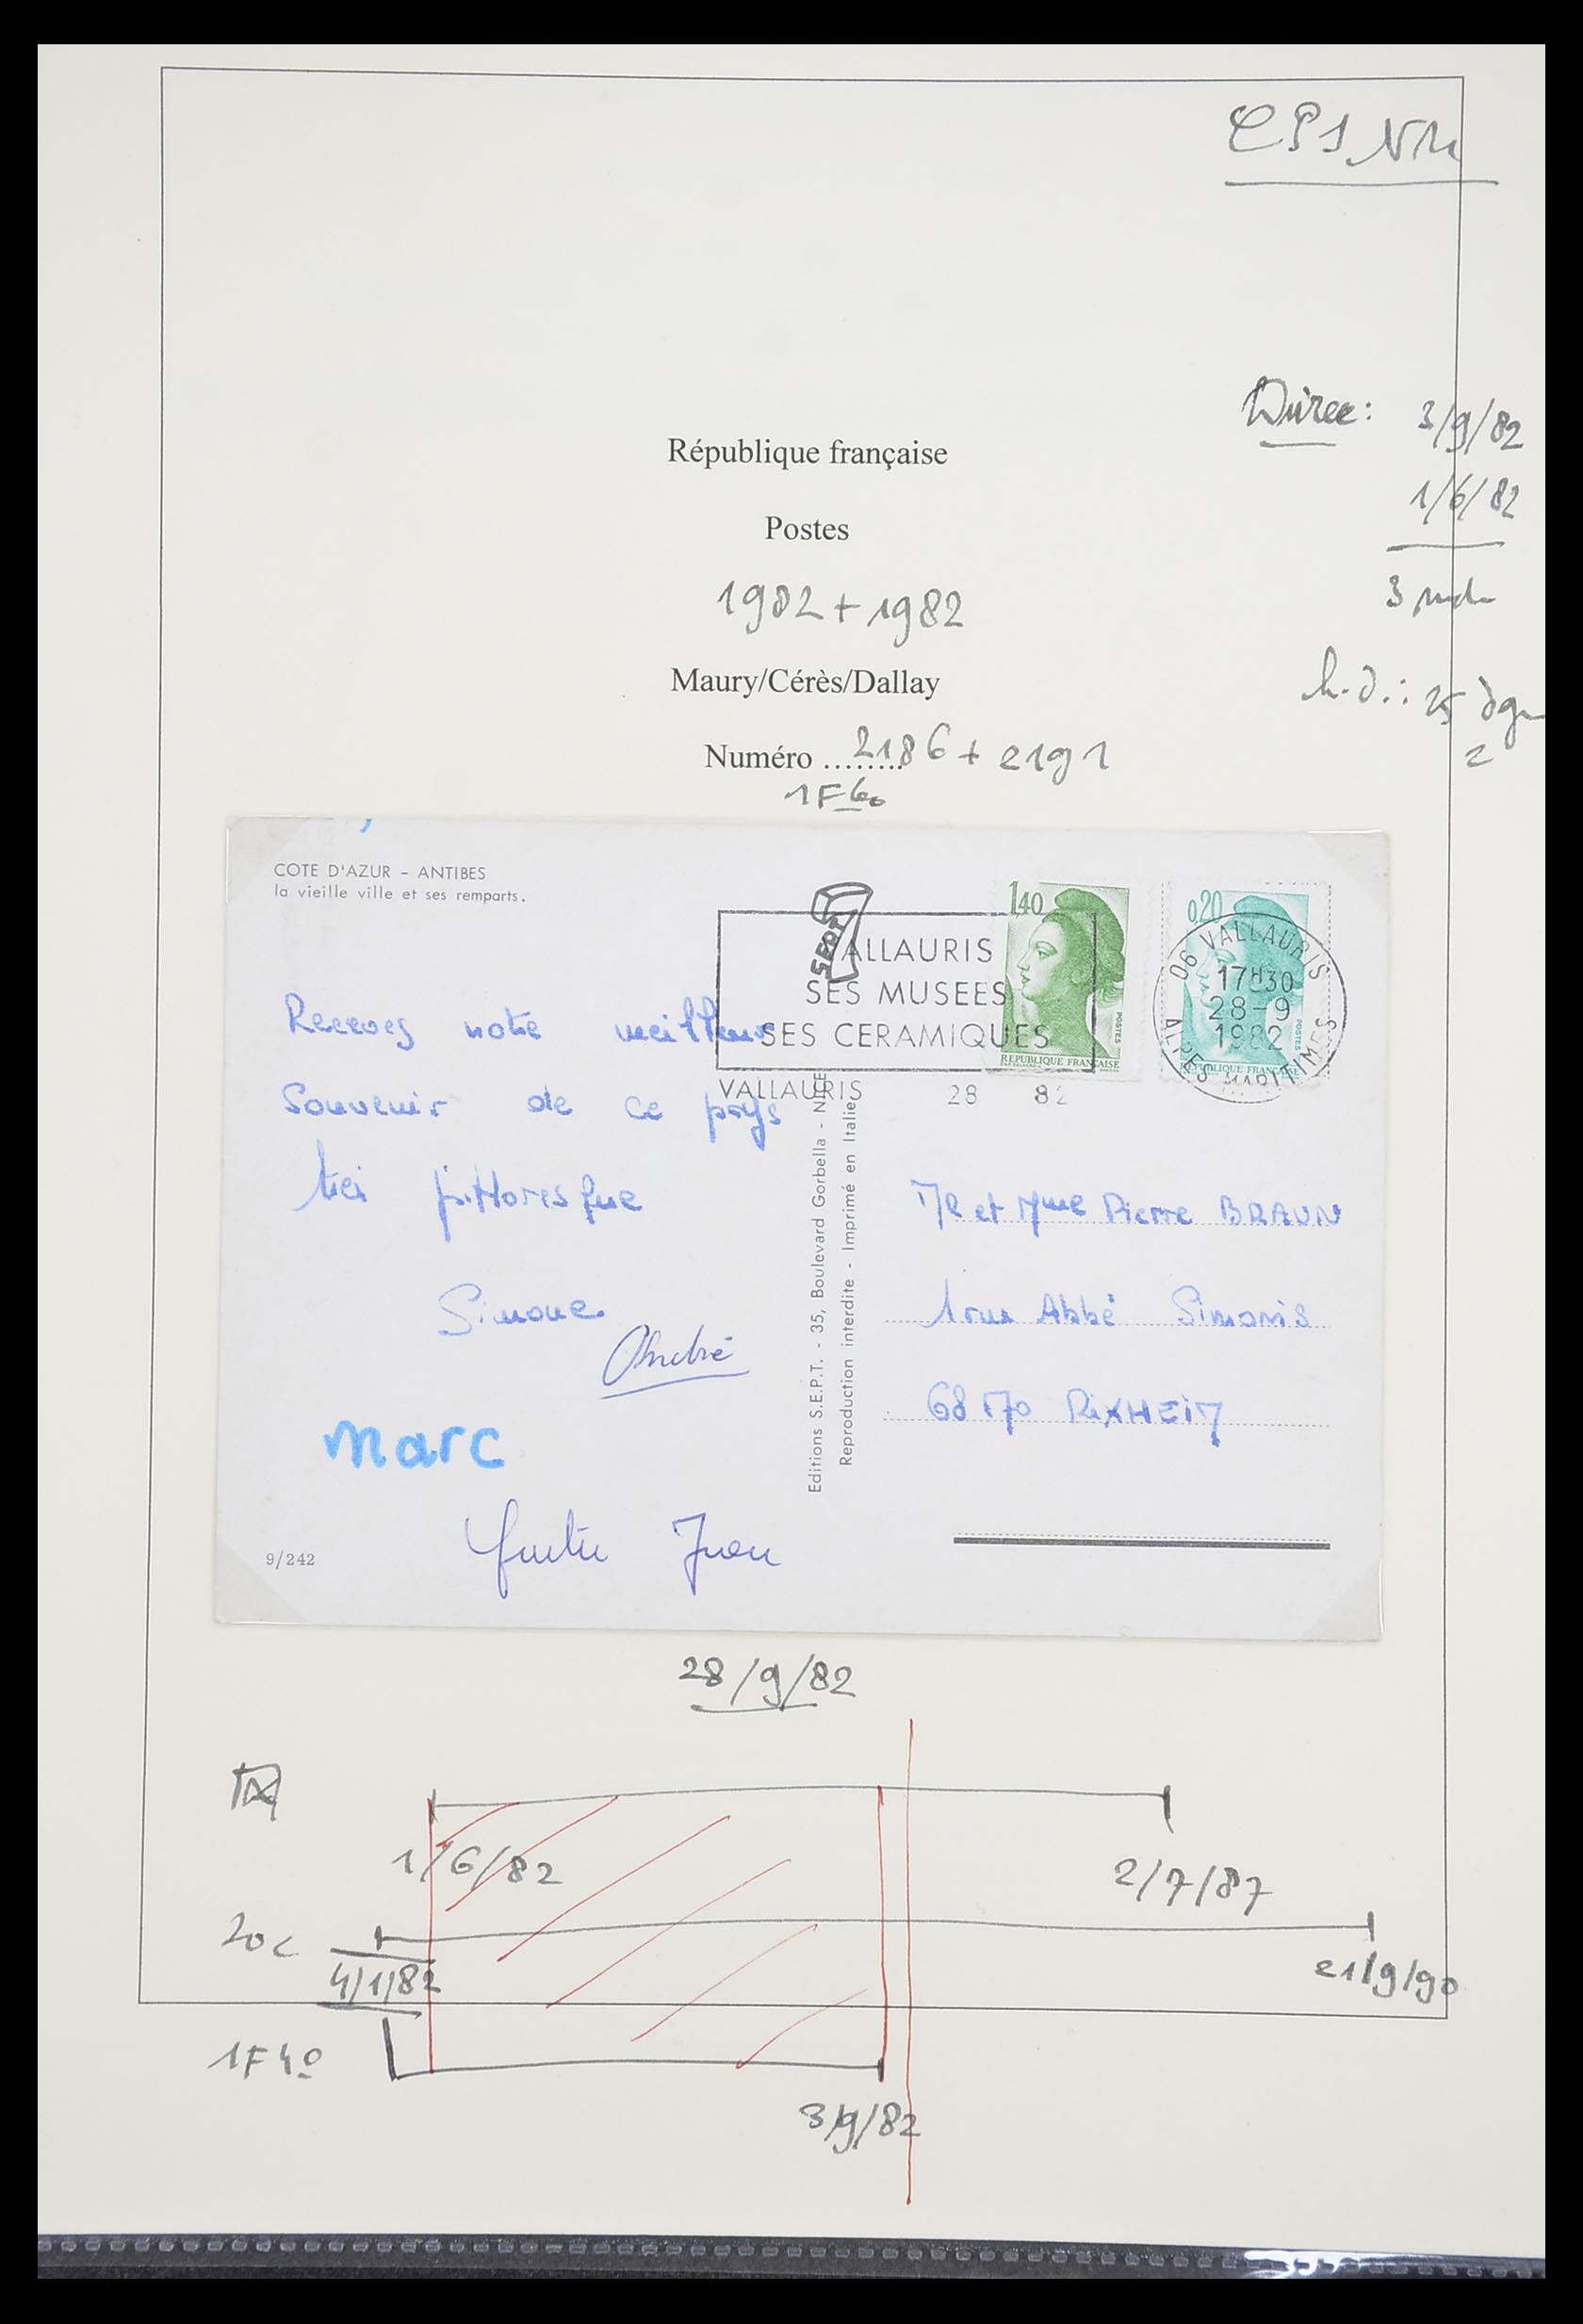 Durée: 3/9/82
1/6/82
République française
Postes
1982 + 1982
Maury/Cérès/Dallay
Numéro ........ 2186 + 2191
1F60
COTE D'AZUR - ANTIBES
la vieille ville et ses remparts.
1,40
POSTES
REPUBLIQUE FRANÇAISE
0,20
POSTES
REPUBLIQUE FRANÇAISE
VALLAURIS
SES MUSEES
SES CERAMIQUES
VALLAURIS 28 82
06 VALLAURIS
17H30
28-9
1982
ALPES MARITIMES
Recevez notre meilleur
Souvenir de ce pays
très pittoresque
Simone
André
marc
9/242
Editions S.E.P.T. - 35, Boulevard Gorbella - NICE
Reproduction interdite - Imprimé en Italie
Mr et Mme Pierre BRAUN
1 rue Abbé Simonis
68170 RiXHEiM
28/9/82
1/6/82
2/7/87
20c
4/1/82
21/9/90
1F40
3/9/82